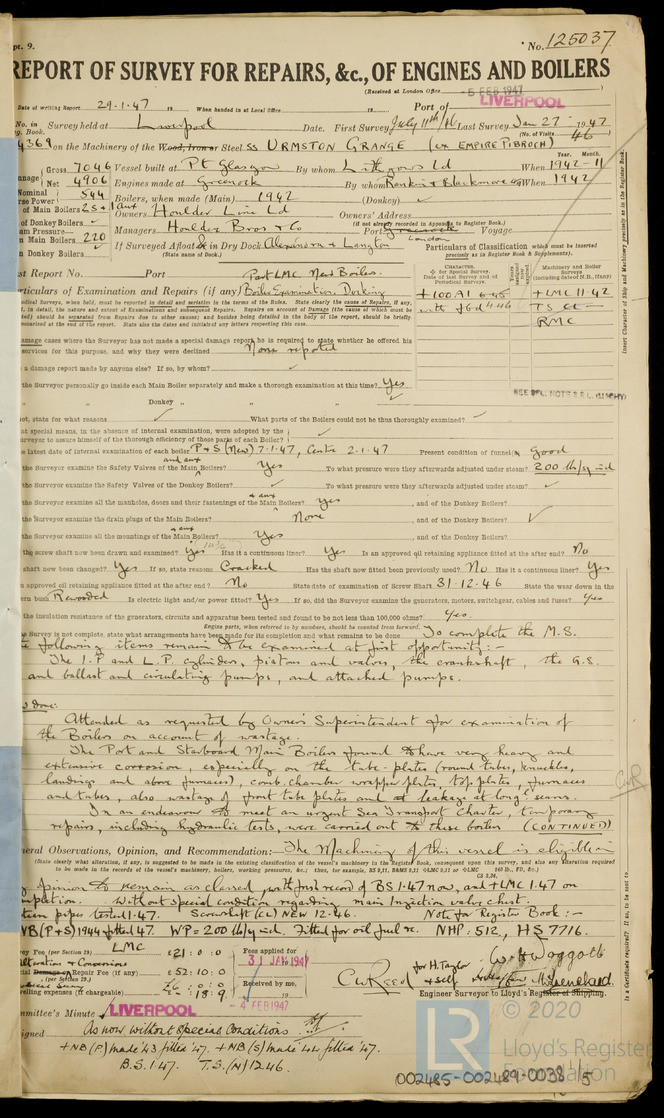 pt. 9.
No. 125037
REPORT OF SURVEY FOR REPAIRS, &c., OF ENGINES AND BOILERS
(Received at London Office -5 FEB 1947 )
Date of writing Report 29.1.47 19 When handed in at Local Office 19 Port of LIVERPOOL
No. in Survey held at Liverpool Date. First Survey July 11th /46 Last Survey Jan 27 - 1947
g. Book. (No. of Visits 46 )
4369 on the Machinery of the Wood, Iron or Steel SS URMSTON GRANGE (ex EMPIRE PIBROCH)
Gross 7046 Vessel built at Pt Glasgow By whom Lithgows Ld When Year. Month. 1942-11
Net 4906 Engines made at Greenock By whom Rankin & Blackmore When 1942
Nominal 544 Boilers, when made (Main) 1942 (Donkey)
of Main Boilers 2S+1aux Owners Houlder Line Ld Owners' Address
(if not already recorded in Appendix to Register Book.)
of Donkey Boilers Managers Houlder Bros & Co Port Greenock London Voyage
Main Boilers 220 If Surveyed Afloat & in Dry Dock Alexandra & Langton
n Donkey Boilers (State name of Dock.)
Particulars of Classification which must be inserted
precisely as in Register Book & Supplement).
st Report No. Port Part LMC. New Boilers.
rticulars of Examination and Repairs (if any) Boiler Examination Docking
CHARACTER. Machinery and Boiler Surveys
+100A1 6.45 +LMC 11.42
with fbd 4.46 TS CL
RMC
amage cases where the Surveyor has not made a special damage report he is required to state whether he offered his
services for this purpose, and why they were declined None reported
a damage report made by anyone else? If so, by whom?
the Surveyor personally go inside each Main Boiler separately and make a thorough examination at this time? Yes
" Donkey " " "
not, state for what reasons What parts of the Boilers could not be thus thoroughly examined?
at special means, in the absence of internal examination, were adopted by the
surveyor to assure himself of the thorough efficiency of those parts of each Boiler?
e latest date of internal examination of each boiler P+S (New) 7.1.47, Centre 2.1.47 Present condition of funnel Good
the Surveyor examine the Safety Valves of the Main and aux Boilers? Yes To what pressure were they afterwards adjusted under steam? 200 lb/sq ind
the Surveyor examine the Safety Valves of the Donkey Boilers? To what pressure were they afterwards adjusted under steam?
the Surveyor examine all the manholes, doors and their fastenings of the Main & aux Boilers? Yes , and of the Donkey Boilers?
the Surveyor examine the drain plugs of the Main Boilers? None , and of the Donkey Boilers?
the Surveyor examine all the mountings of the Main & aux Boilers? Yes , and of the Donkey Boilers?
the screw shaft now been drawn and examined? Yes Has it a continuous liner? Yes Is an approved oil retaining appliance fitted at the after end? No
shaft now been changed? Yes If so, state reasons Cracked Has the shaft now fitted been previously used? No Has it a continuous liner? Yes
n approved oil retaining appliance fitted at the after end? No State date of examination of Screw Shaft 31.12.46 State the wear down in the
ern bush Rewooded Is electric light and/or power fitted? Yes If so, did the Surveyor examine the generators, motors, switchgear, cables and fuses? Yes
the insulation resistance of the generators, circuits and apparatus been tested and found to be not less than 100,000 ohms? Yes.
Engine parts, when referred to by numbers, should be counted from forward.
Survey is not complete, state what arrangements have been made for its completion and what remains to be done To complete the M.S.
following items remain to be examined at first opportunity:-
The I.P and L.P. cylinders, pistons and valves, the crankshaft, the G.S.
and ballast and circulating pumps, and attached pumps.
done:
Attended as requested by Owner's Superintendent for examination of
the Boilers on account of wastage.
The Port and Starboard Main Boilers found to have very heavy and
extensive corrosion, especially on the tube-plates (round tubes, knuckles,
landings and above furnaces), comb. chamber wrapper plates, top plates, furnaces
and tubes, also wastage of front tube plates and leakage at long! seams.
In an endeavour to meet an urgent Sea Transport Charter, temporary
repairs, including hydraulic tests, were carried out to these boilers (CONTINUED)
neral Observations, Opinion, and Recommendation:- The Machinery of this vessel is eligible in
(State clearly what alteration, if any, is suggested to be made in the existing classification of the vessel's machinery in the Register Book, consequent upon this survey, and also any alteration required
to be made in the records of the vessel's machinery, boilers, working pressures, &c.;
opinion to remain as classed, with fresh record of BS 1.47 now, and +LMC 1.47 on
Without special condition regarding main Injection valve chest.
pipes tested 1.47. Screwshaft (CL) NEW 12.46. Note for Register Book:-
NB (P+S) 1944 fitted 47 WP=200 lb/sq ind. Fitted for oil fuel NHP: 512, HS 7716.
ey Fee (per Section 29) LMC £21 : 0 : 0 Fees applied for
Alterations & Conversions 31 JAN 1947
Repair Fee (if any) £52 : 10 : 0
(per Section 29.) £6 : 0 : 0 Received by me,
elling expenses (if chargeable) £ : 18 : 9 19
CWReed for H. Taylor & self W. H. Waggott
Engineer Surveyor to Lloyd's Register of Shipping.
mmittee's Minute LIVERPOOL - 4 FEB 1947
signed As now without Special Conditions
+NB (P) made '43 fitted '47. +NB (S) made '44 fitted '47.
B.S. 1.47. T.S. (N) 12.46.
Insert Character of Ship and Machinery precisely as in the Register Book.
Is a Certificate required? If so, to be sent to
CWR
LR
© 2020
Lloyd's Register
Foundation
002485-002489-0038 1/5